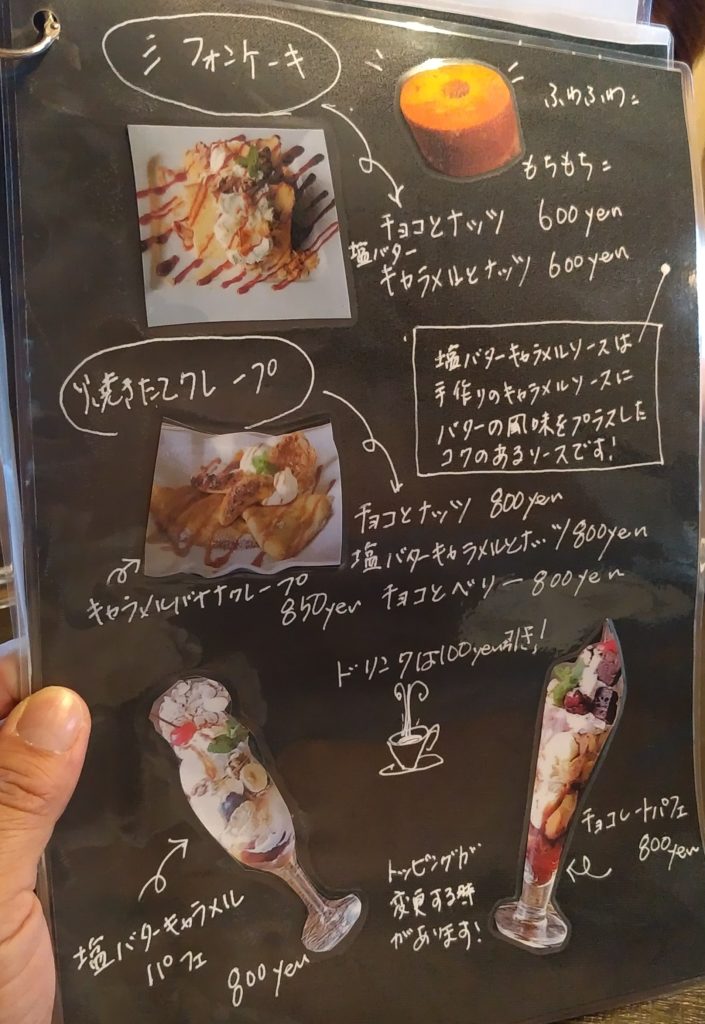 シフォンケーキ
ふわふわ
もちもち
チョコとナッツ 600yen
塩バター
キャラメルとナッツ 600yen
塩バターキャラメルソースは
手作りのキャラメルソースに
バターの風味をプラスした
コクのあるソースです!
焼きたてクレープ
チョコとナッツ 800yen
塩バターキャラメルとナッツ 800yen
チョコとベリー 800yen
キャラメルバナナクレープ
850yen
ドリンクは100yen引き!
塩バターキャラメル
パフェ
800yen
トッピングが
変更する時
があります!
チョコレートパフェ
800yen